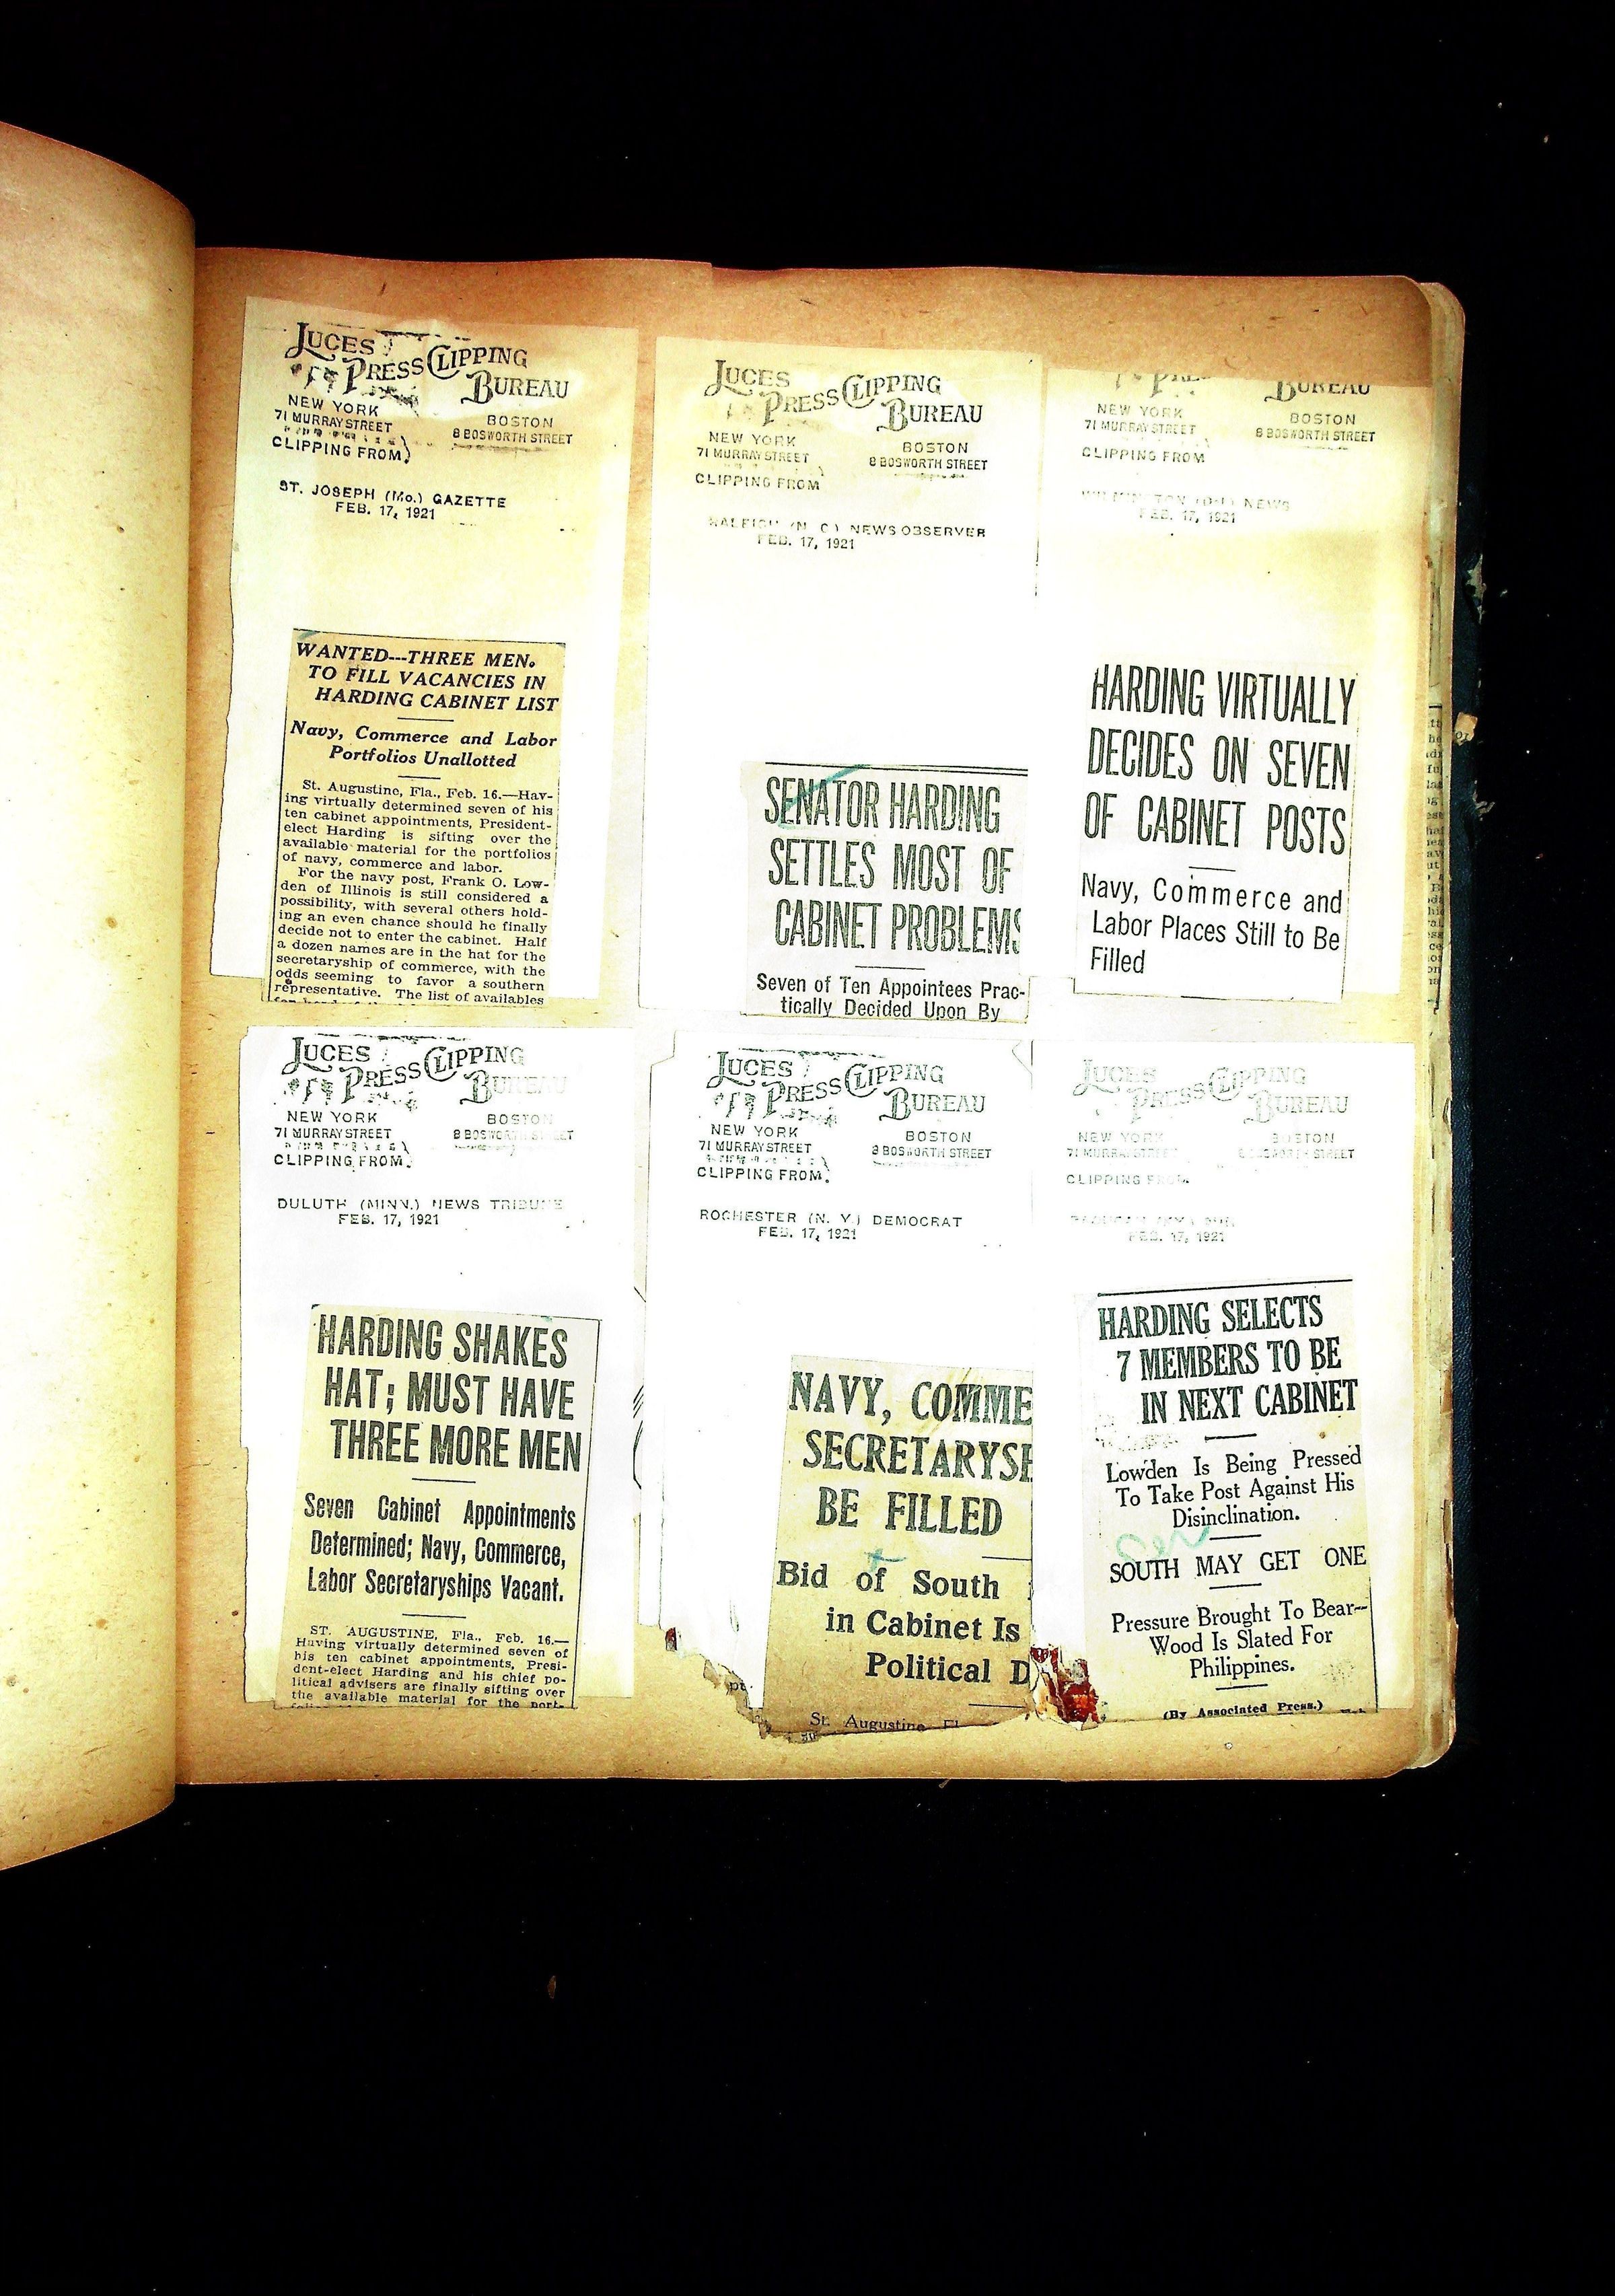 LUCES
PRESS CLIPPING
BUREAU
NEW YORK
71 MURRAY STREET
BOSTON
8 BOSWORTH STREET
CLIPPING FROM
ST. JOSEPH (Mo.) GAZETTE
FEB. 17, 1921
WANTED---THREE MEN.
TO FILL VACANCIES IN
HARDING CABINET LIST
Navy, Commerce and Labor
Portfolios Unallotted
St. Augustine, Fla., Feb. 16.—Hav-
ing virtually determined seven of his
ten cabinet appointments, President-
elect Harding is sifting over the
available material for the portfolios
of navy, commerce and labor.
For the navy post, Frank O. Low-
den of Illinois is still considered a
possibility, with several others hold-
ing an even chance should he finally
decide not to enter the cabinet. Half
a dozen names are in the hat for the
secretaryship of commerce, with the
odds seeming to favor a southern
representative. The list of availables
LUCES
PRESS CLIPPING
BUREAU
NEW YORK
71 MURRAY STREET
BOSTON
8 BOSWORTH STREET
CLIPPING FROM
RALEIGH (N. C.) NEWS OBSERVER
FEB. 17, 1921
SENATOR HARDING
SETTLES MOST OF
CABINET PROBLEMS
Seven of Ten Appointees Prac-
tically Decided Upon By
BUREAU
NEW YORK
71 MURRAY STREET
BOSTON
8 BOSWORTH STREET
CLIPPING FROM
NEWS
FEB. 17, 1921
HARDING VIRTUALLY
DECIDES ON SEVEN
OF CABINET POSTS
Navy, Commerce and
Labor Places Still to Be
Filled
LUCES
PRESS CLIPPING
BUREAU
NEW YORK
71 MURRAY STREET
BOSTON
8 BOSWORTH STREET
CLIPPING FROM
DULUTH (MINN.) NEWS TRIBUNE
FEB. 17, 1921
HARDING SHAKES
HAT; MUST HAVE
THREE MORE MEN
Seven Cabinet Appointments
Determined; Navy, Commerce,
Labor Secretaryships Vacant.
ST. AUGUSTINE, Fla., Feb. 16.—
Having virtually determined seven of
his ten cabinet appointments, Presi-
dent-elect Harding and his chief po-
litical advisers are finally sifting over
the available material for the port-
LUCES
PRESS CLIPPING
BUREAU
NEW YORK
71 MURRAY STREET
BOSTON
8 BOSWORTH STREET
CLIPPING FROM
ROCHESTER (N. Y.) DEMOCRAT
FEB. 17, 1921
NAVY, COMME
SECRETARYSH
BE FILLED
Bid of South
in Cabinet Is
Political D
St. Augustine, Fl
LUCES
PRESS CLIPPING
BUREAU
NEW YORK
71 MURRAY STREET
BOSTON
8 BOSWORTH STREET
CLIPPING FROM
FEB. 17, 1921
HARDING SELECTS
7 MEMBERS TO BE
IN NEXT CABINET
Lowden Is Being Pressed
To Take Post Against His
Disinclination.
SOUTH MAY GET ONE
Pressure Brought To Bear--
Wood Is Slated For
Philippines.
(By Associated Press.)